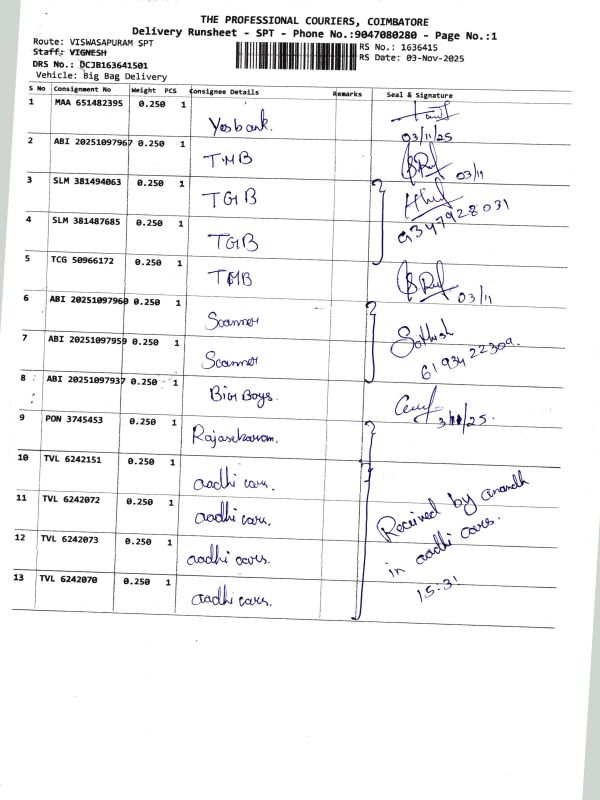 THE PROFESSIONAL COURIERS, COIMBATORE
Delivery Runsheet - SPT - Phone No.:9047080280 - Page No.:1
Route: VISWASAPURAM SPT
RS No.: 1636415
Staff: VIGNESH
RS Date: 03-Nov-2025
DRS No.: DCJB163641501
Vehicle: Big Bag Delivery
S No Consignment No Weight PCS Consignee Details Remarks Seal & Signature
1 MAA 651482395 0.250 1 Yes bank.
03/11/25
2 ABI 20251097967 0.250 1 TMB
03/11
3 SLM 381494063 0.250 1 TGB
9347928031
4 SLM 381487685 0.250 1 TGB
5 TCG 50966172 0.250 1 TMB
03/11
6 ABI 20251097960 0.250 1 Scanner
Sathish
7 ABI 20251097959 0.250 1 Scanner
6193422309.
8 ABI 20251097937 0.250 1 Big Boys.
3/11/25.
9 PON 3745453 0.250 1 Rajasekaram.
10 TVL 6242151 0.250 1 aadhi cars.
11 TVL 6242072 0.250 1 aadhi cars.
Received by anandh
12 TVL 6242073 0.250 1 aadhi cars.
in aadhi cars.
13 TVL 6242070 0.250 1 aadhi cars.
15:31